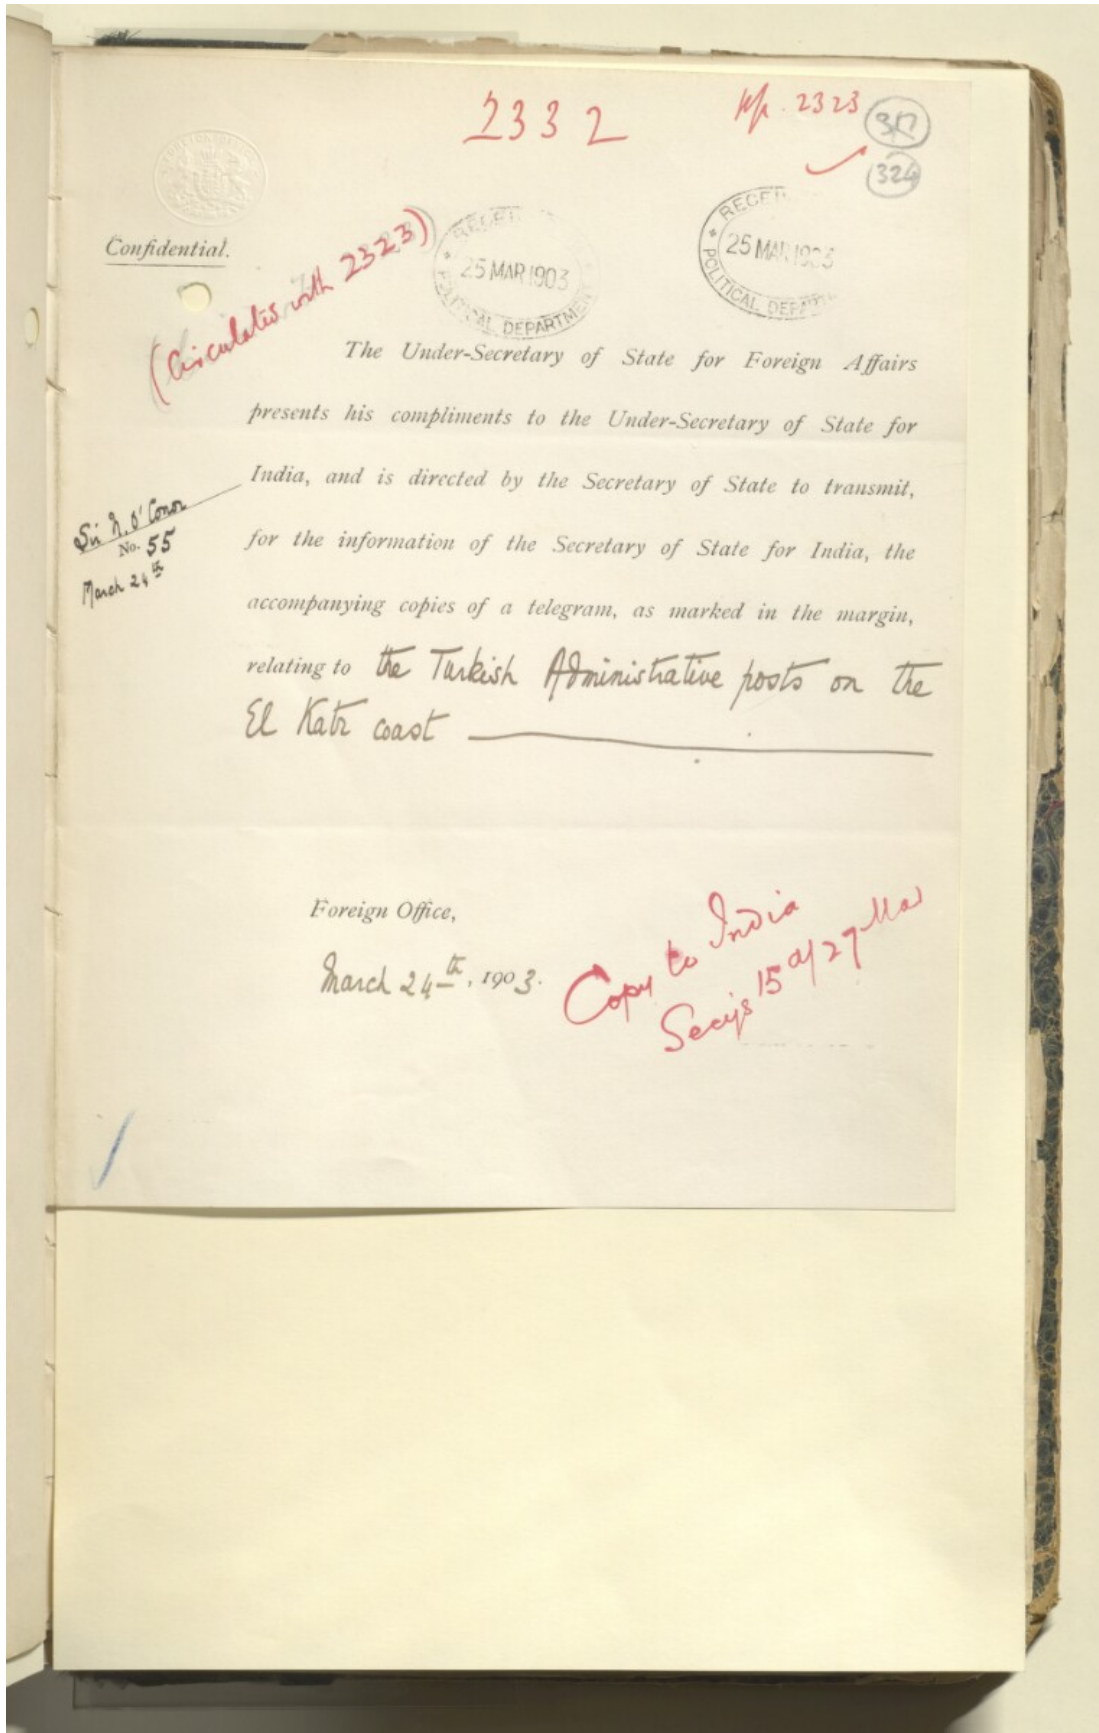 2332
2323
317
324
FOREIGN OFFICE
Confidential.
(Circulated with 2323)
RECEI
25 MAR 1903
POLITICAL DEPARTMENT
RECEI
25 MAR 1903
POLITICAL DEPART
The Under-Secretary of State for Foreign Affairs
presents his compliments to the Under-Secretary of State for
India, and is directed by the Secretary of State to transmit,
Sir N. O'Conor
No. 55
March 24th
for the information of the Secretary of State for India, the
accompanying copies of a telegram, as marked in the margin,
relating to the Turkish Administrative posts on the
El Katr coast
Foreign Office,
March 24th, 1903.
Copy to India
Secy's 15 of 27 Mar